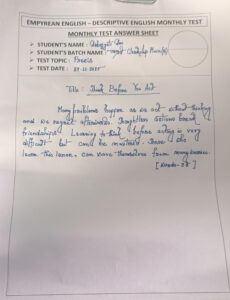 EMPYREAN ENGLISH – DESCRIPTIVE ENGLISH MONTHLY TEST
MONTHLY TEST ANSWER SHEET
➤ STUDENT'S NAME :
➤ STUDENT'S BATCH NAME :
➤ TEST TOPIC : Precis
➤ TEST DATE :
Title : Think Before You Act
Many problems happen as we act without thinking
and we regret afterwards. Thoughtless actions break
friendships. Learning to think before acting is very
difficult but could be mastered. Those who
learn this lesson, can save themselves from many